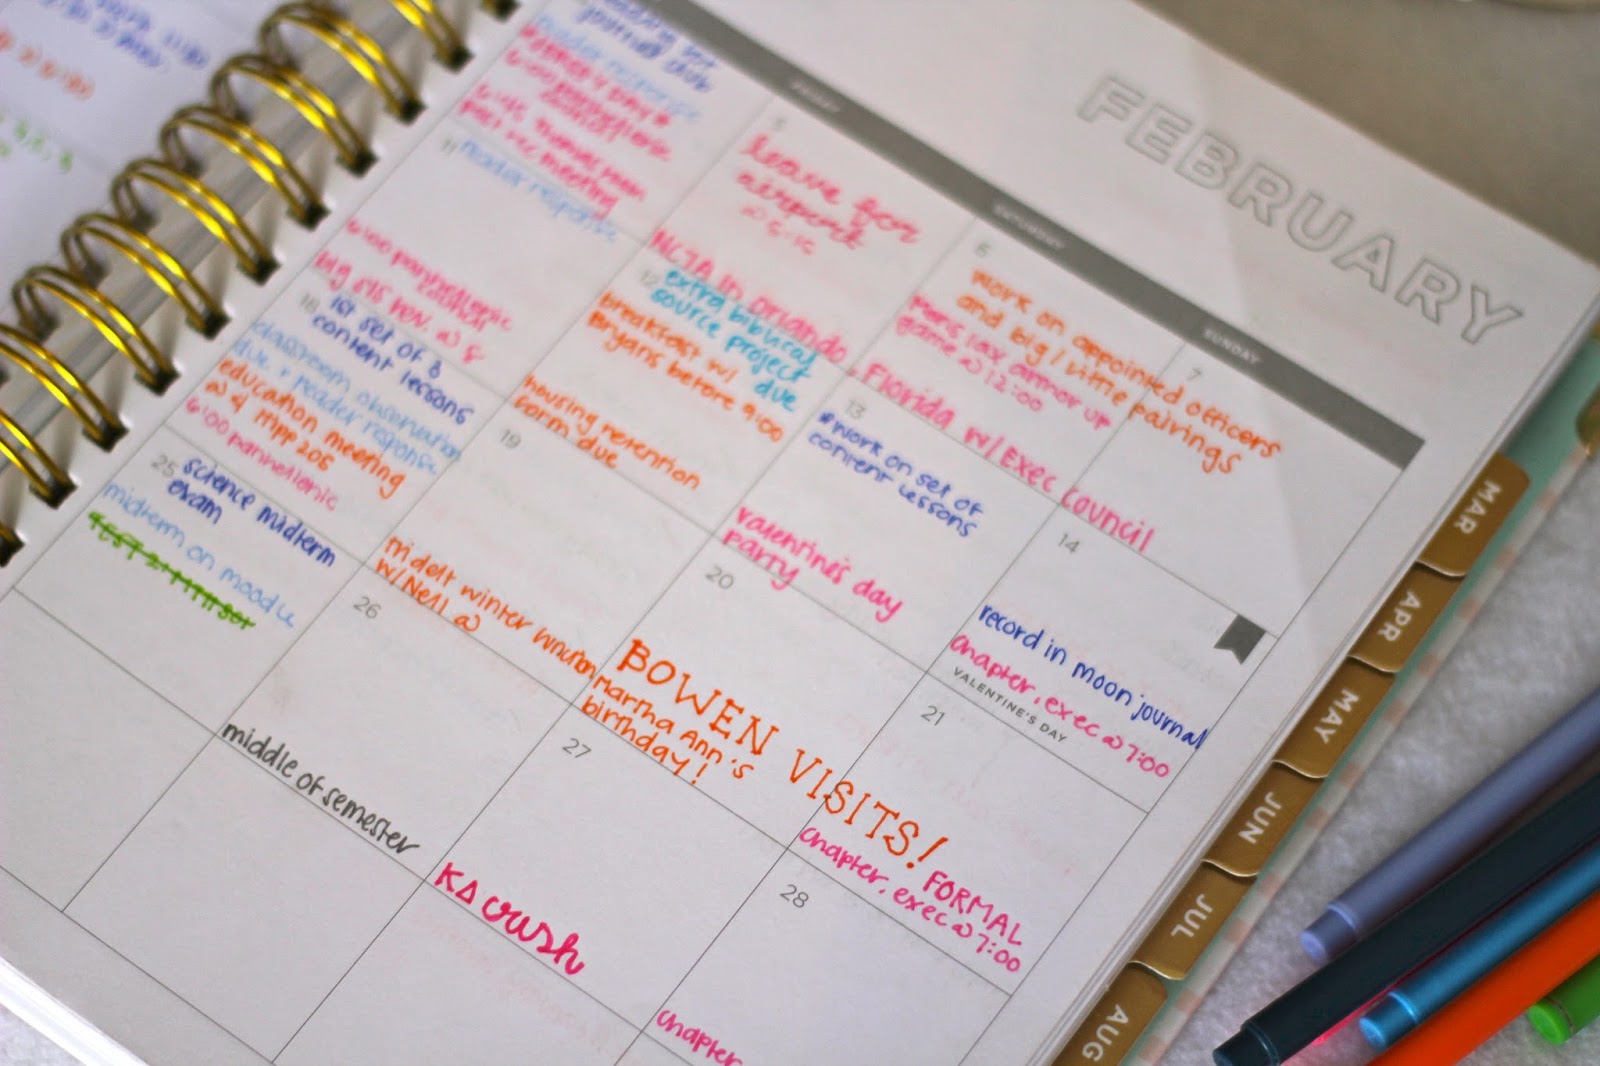 FEBRUARY
FRIDAY
SATURDAY
SUNDAY
reader response
6:00 panhellenic
meeting
5
leave for
airport
@ 5:15
NCJA in Orlando, Florida w/ Exec Council
6
work on appointed officers
and big/little pairings
mens lax armor up
game @ 12:00
7
11
reader response
6:00 panhellenic
12
extra biblical
source project
due
breakfast w/
Bryans before 9:00
housing retention
form due
13
*work on set of
content lessons
valentine's day
party
14
record in moon journal
chapter, exec @ 7:00
VALENTINE'S DAY
18
1st set of 3
content lessons
classroom observation
due + reader response
education meeting
@ 4 mpp 205
6:00 panhellenic
19
midelt winter function
w/ Nell @
20
BOWEN VISITS!
Martha Ann's
birthday!
21
FORMAL
chapter, exec @ 7:00
25
science midterm
exam
midterm on moodle
26
middle of semester
27
KΔ crush
28
chapter
MAR
APR
MAY
JUN
JUL
AUG